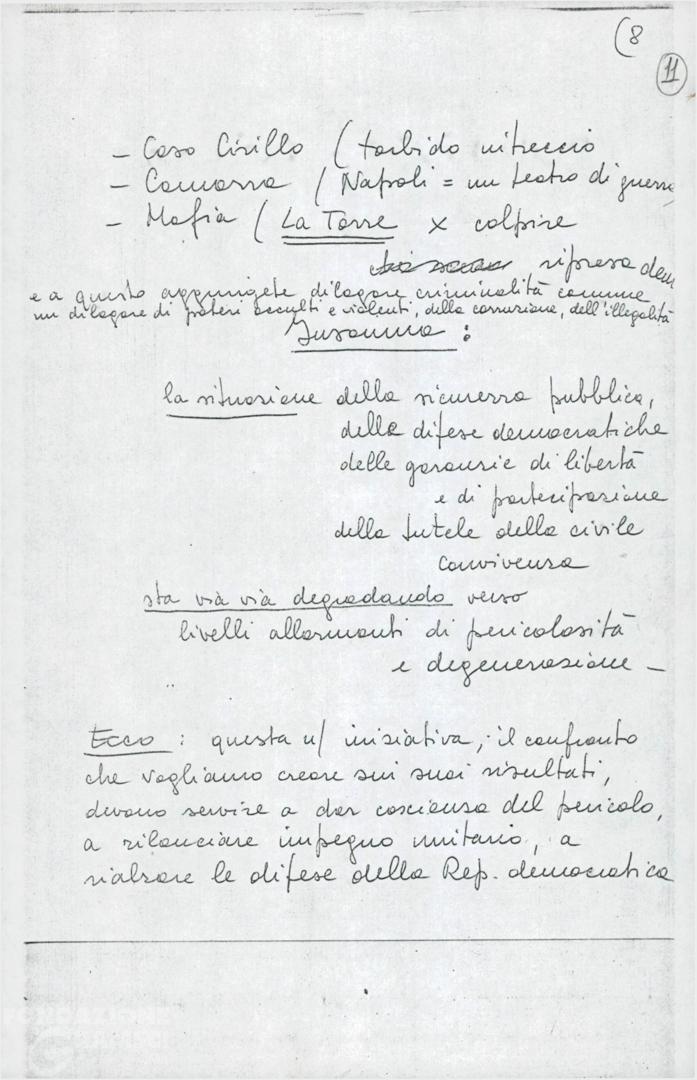 (8
11
- Caso Cirillo ( torbido intreccio
- Camorra ( Napoli = un teatro di guerra
- Mafia ( La Torre x colpire
ripresa dem
e a questo aggiungete dilagare criminalità comune
un dilagare di poteri occulti e violenti, della corruzione, dell'illegalità
Insomma :
la situazione della sicurezza pubblica,
delle difese democratiche
delle garanzie di libertà
e di partecipazione
della tutela della civile
convivenza
sta via via degradando verso
livelli allarmanti di pericolosità
e degenerazione -
Ecco : questa n/ iniziativa, il confronto
che vogliamo creare sui suoi risultati,
devono servire a dar coscienza del pericolo,
a rilanciare impegno unitario, a
rialzare le difese della Rep. democratica
FONDAZIONE